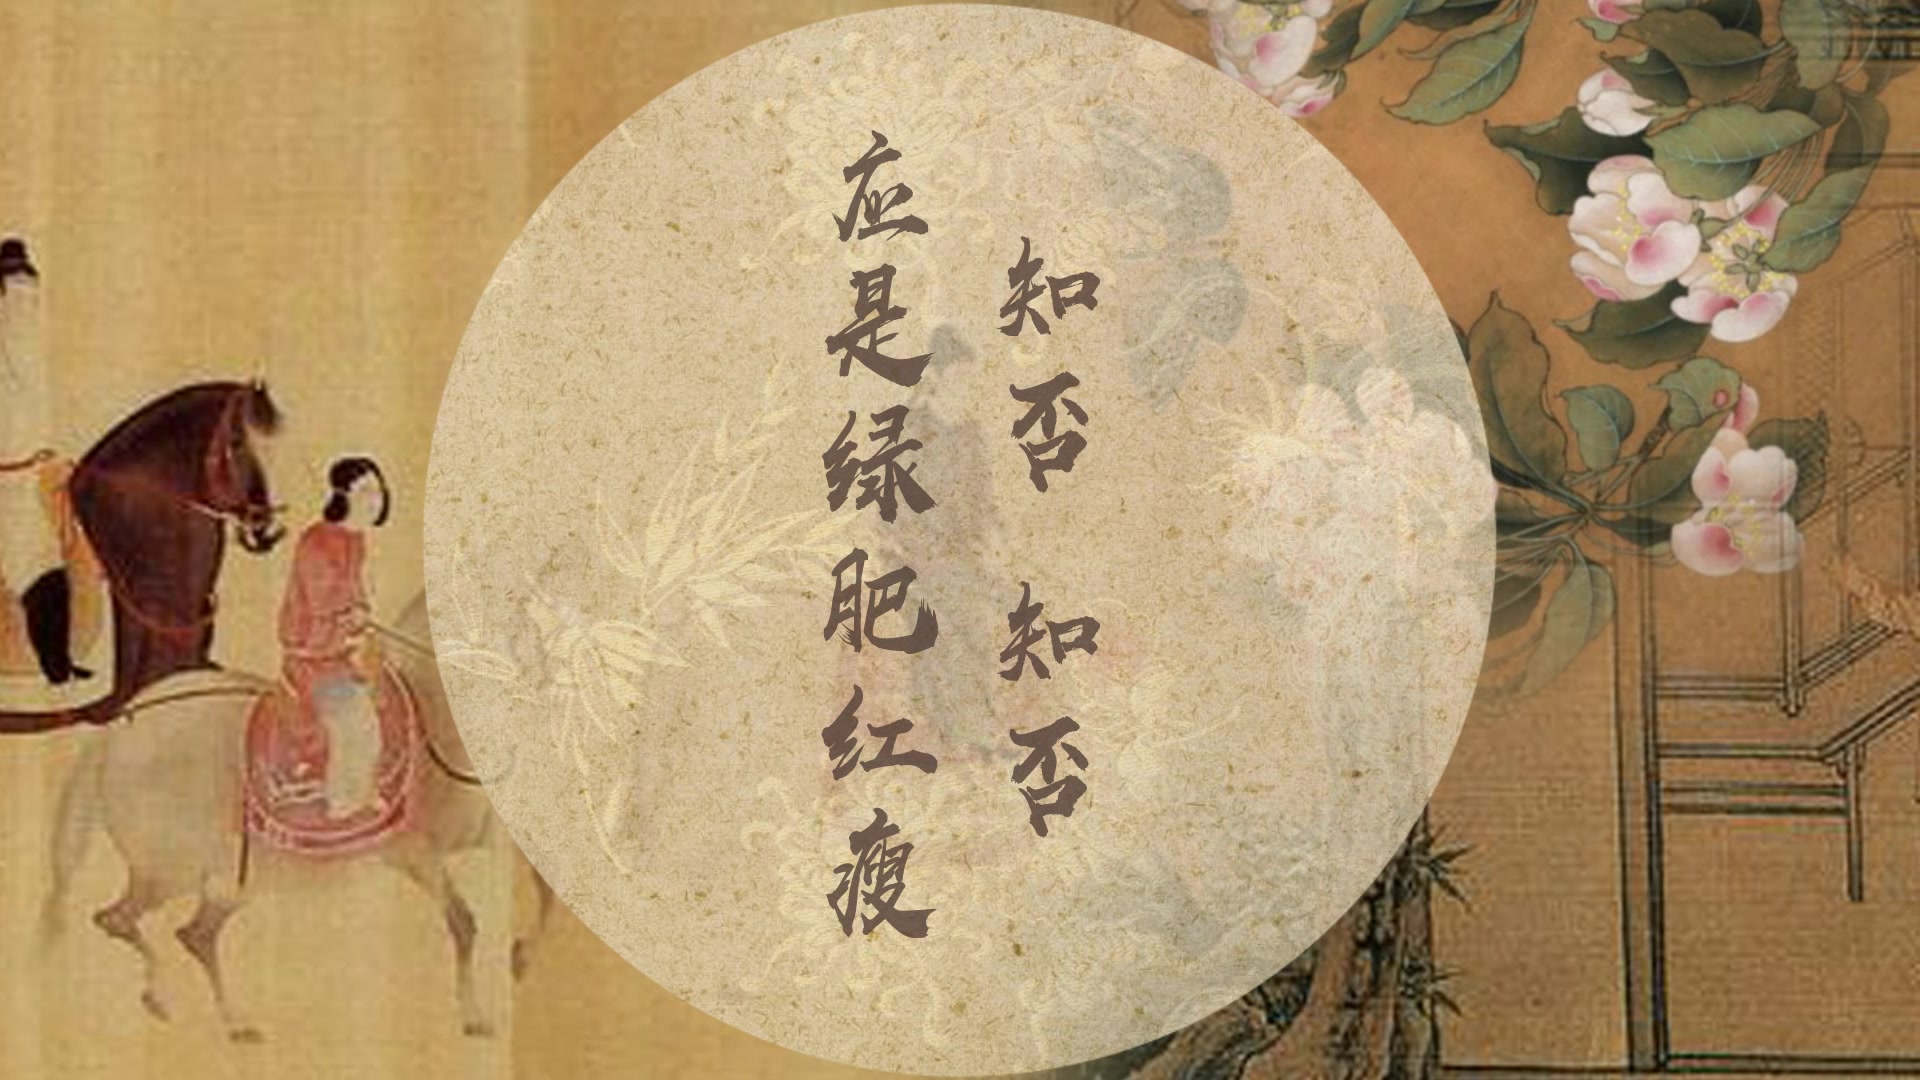 知否 知否
应是绿肥红瘦